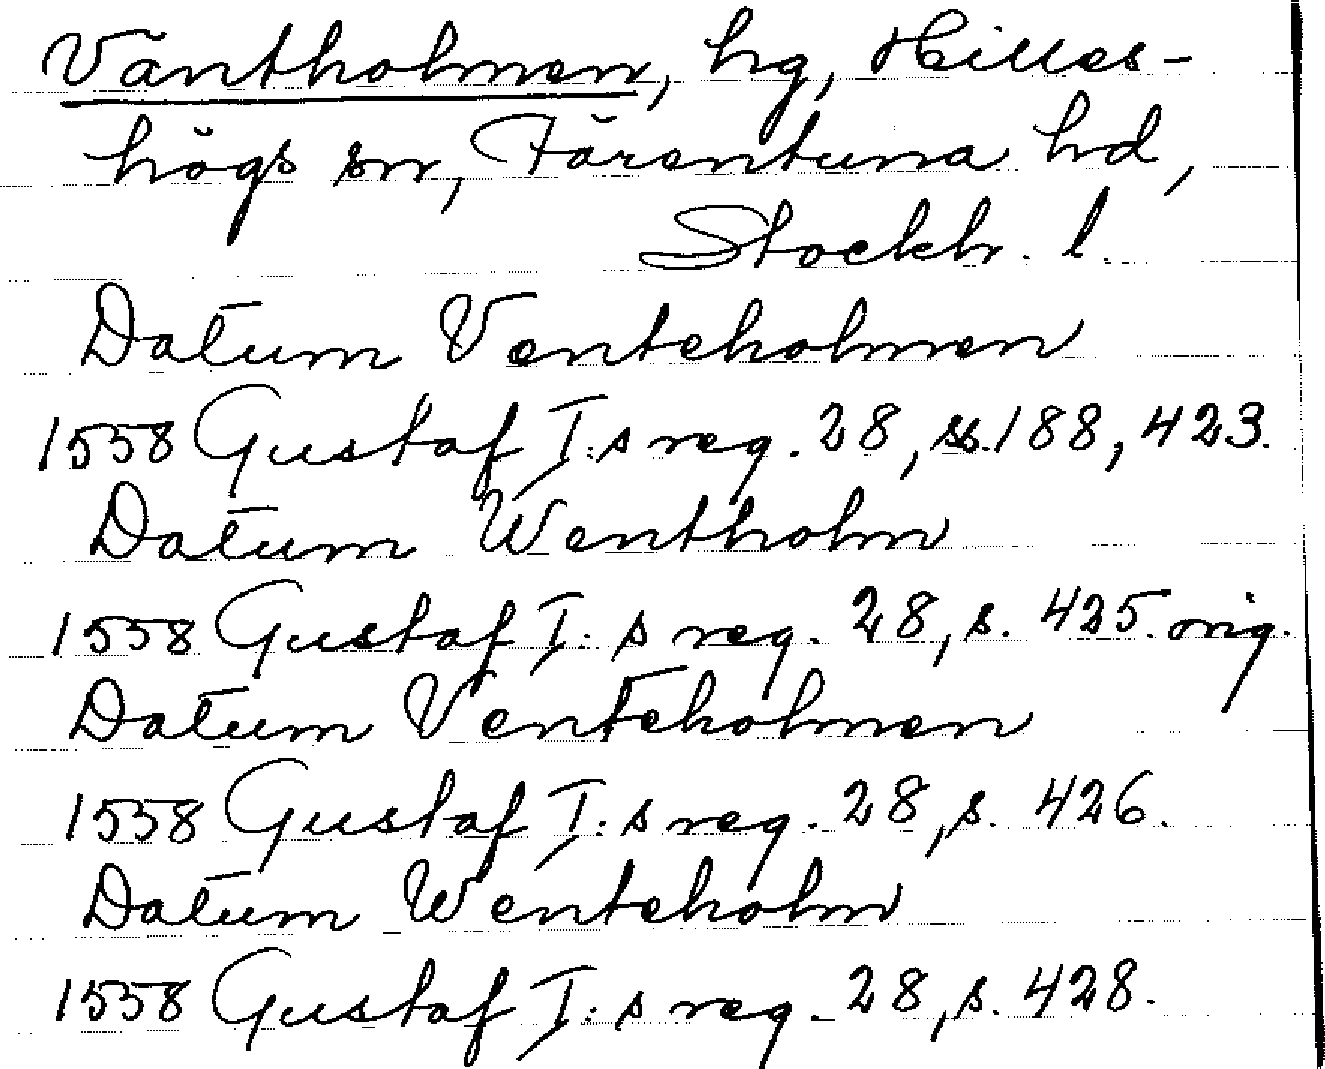 Väntholmen, hg, Hilles-
högs sn, Färentuna hd,
Stockh. l.
Datum Venteholmen
1558 Gustaf I:s reg. 28, ss. 188, 423.
Datum Wentholm
1558 Gustaf I:s reg. 28, s. 425. orig.
Datum Venteholmen
1558 Gustaf I:s reg. 28, s. 426.
Datum Wenteholm
1558 Gustaf I:s reg. 28, s. 428.